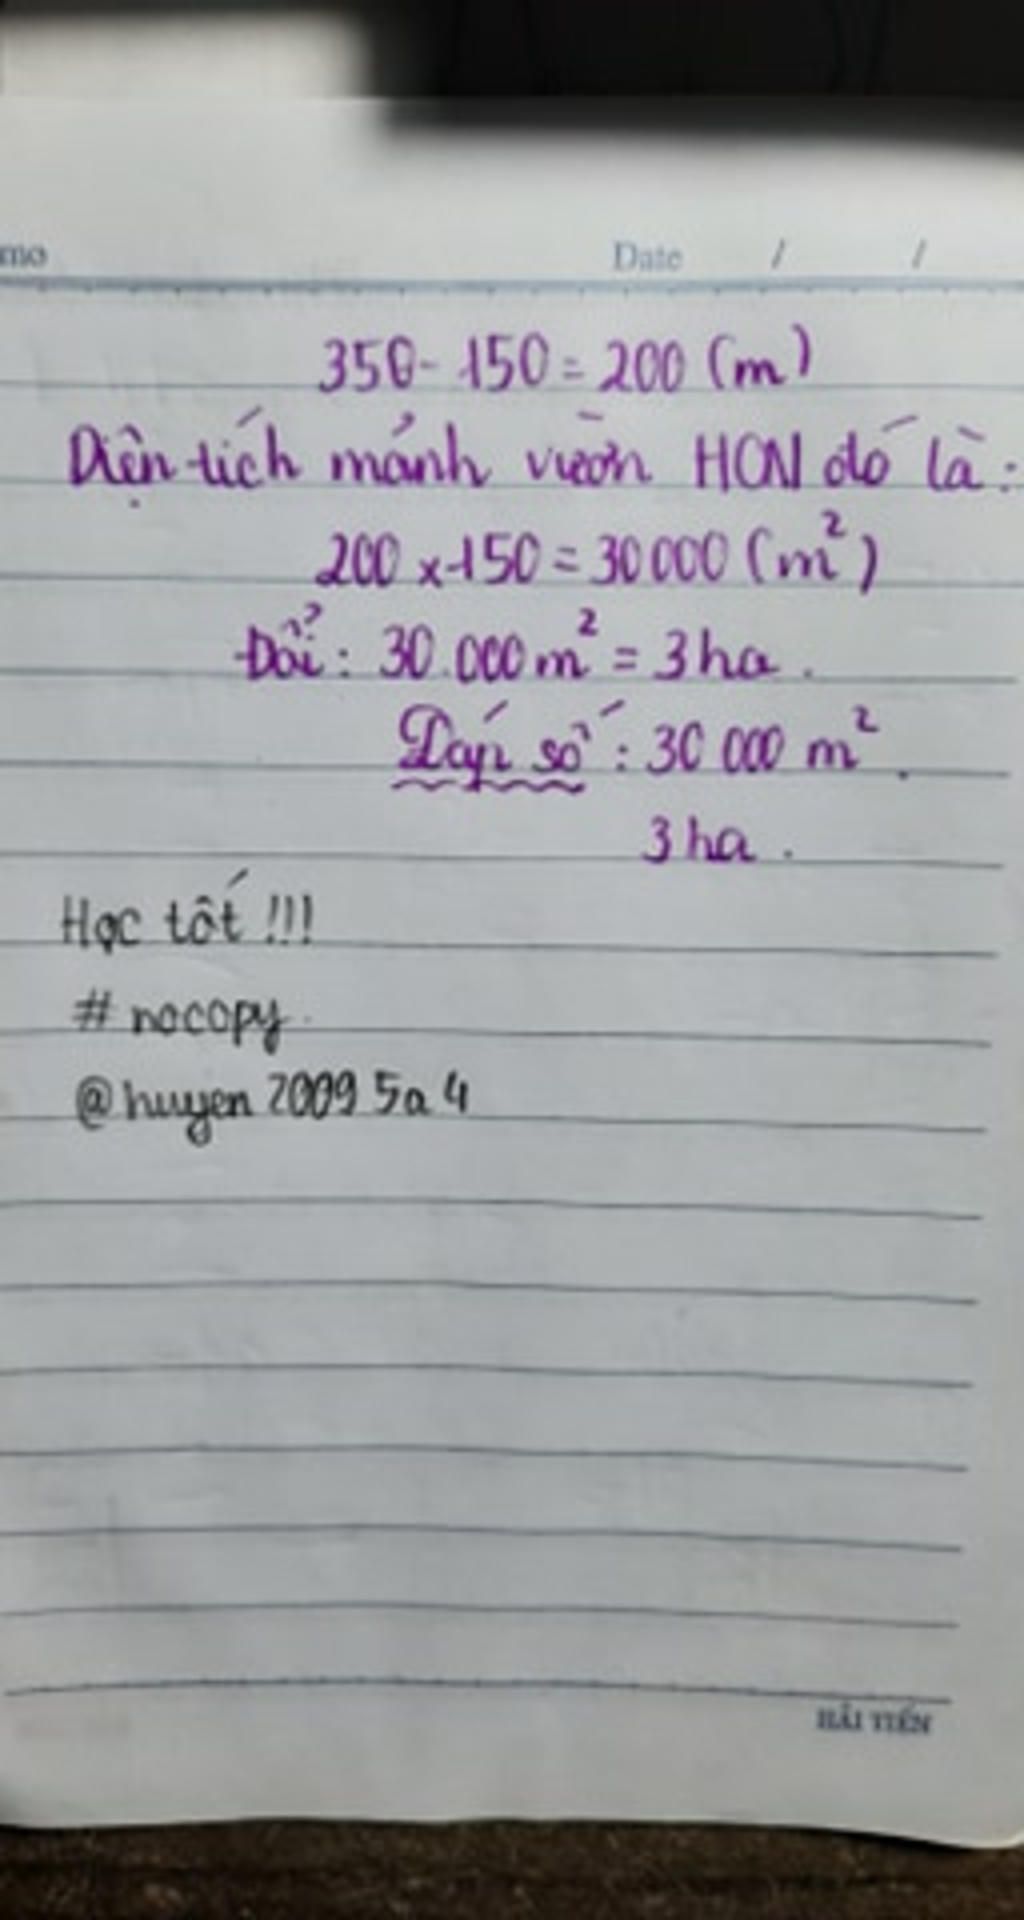 mo Date / /
350 - 150 = 200 (m)
Diện tích mảnh vườn HCN đó là:
200 x 150 = 30 000 (m²)
Đổi: 30.000 m² = 3 ha.
Đáp số: 30 000 m².
3 ha.
Học tốt !!!
# nocopy.
@huyen 2009 5a4
HẢI TIẾN